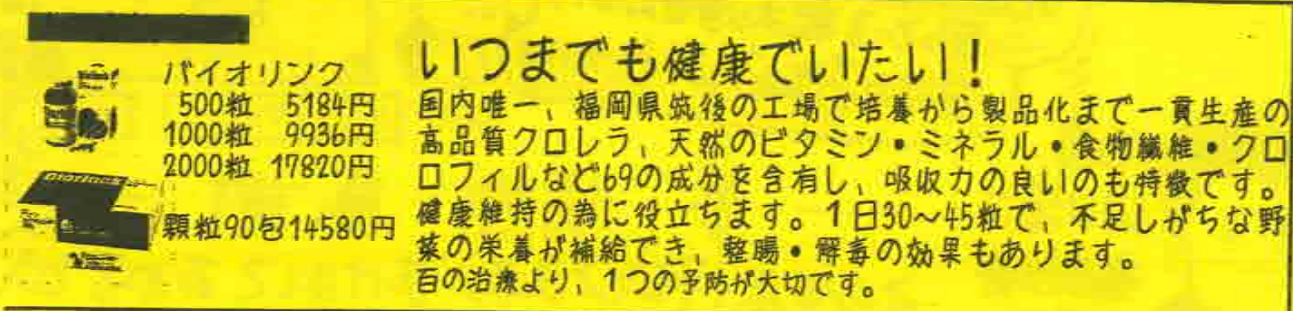 バイオリンク
500粒 5184円
1000粒 9936円
2000粒 17820円
顆粒90包14580円
いつまでも健康でいたい!
国内唯一、福岡県筑後の工場で培養から製品化まで一貫生産の
高品質クロレラ、天然のビタミン・ミネラル・食物繊維・クロ
ロフィルなど69の成分を含有し、吸収力の良いのも特徴です。
健康維持の為に役立ちます。1日30~45粒で、不足しがちな野
菜の栄養が補給でき、整腸・解毒の効果もあります。
百の治療より、1つの予防が大切です。